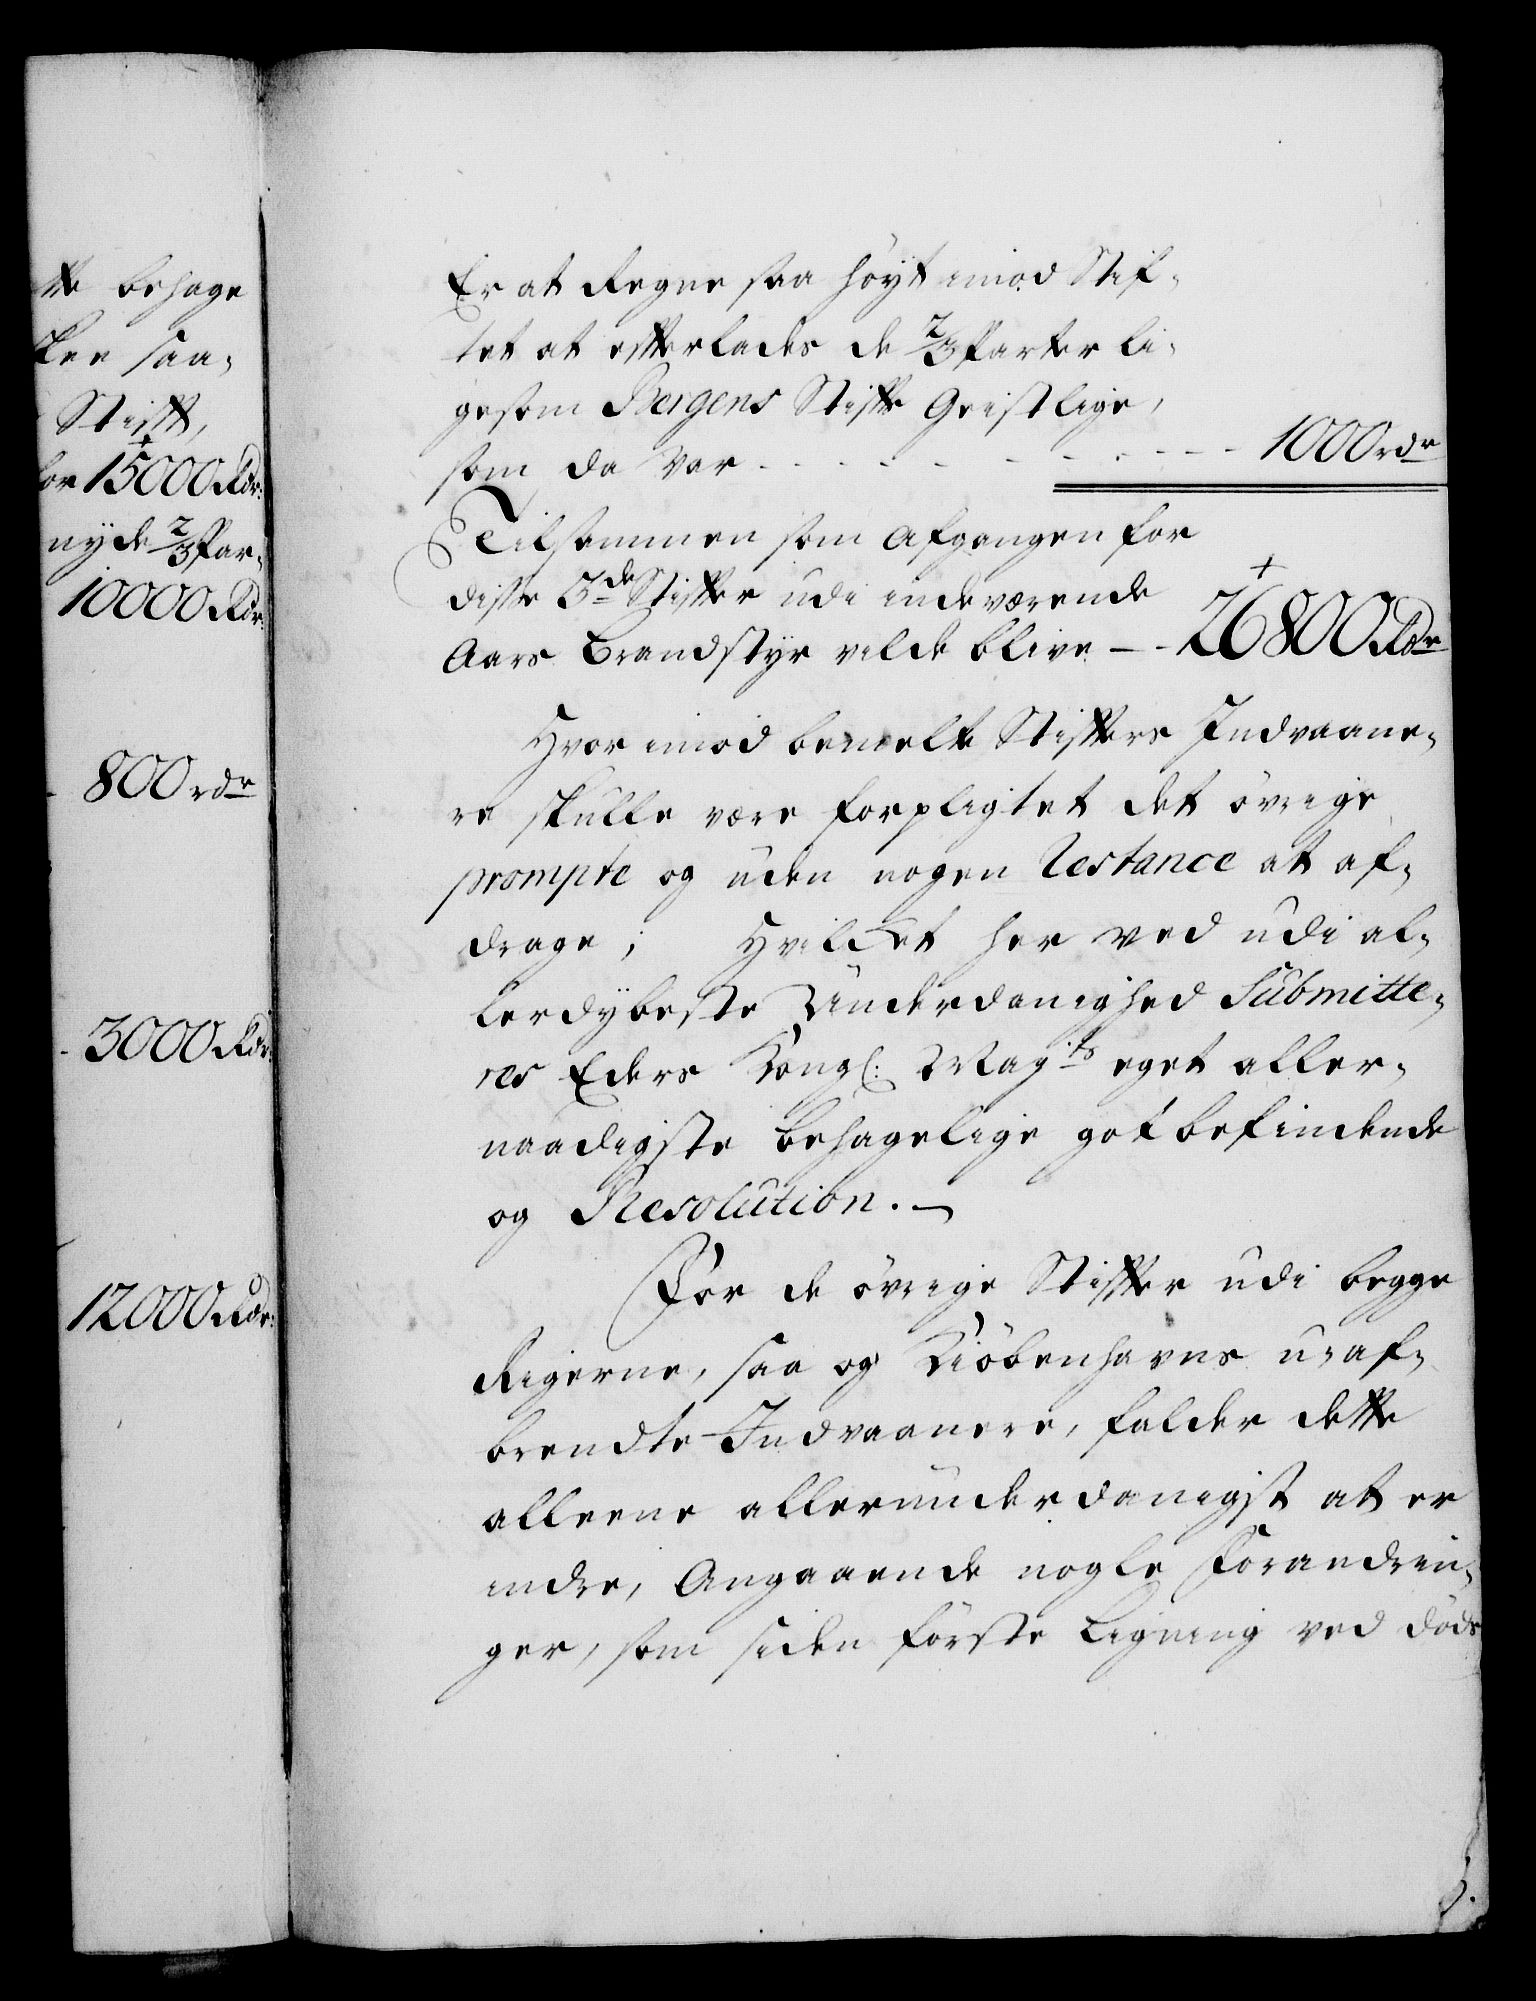 tte behage
skee saa-
Stift,
for 15000 Rdr:
nyde 2/3 Par-
10000 Rdr:
- 800 rdr
- 3000 Rdr:
12000 Rdr:
Er at Regne saa höyt imod Stif-
tet at efterlades de 2/3 Parter li-
gesom Bergens Stifts Geistlige,
som da var - - - - - - - - - - 1000 rdr
Tilsammen som Afgangen for
disse 3de Stifter udi indeværende
Aars Brandstyr vilde blive - - 26800 Rdr
Hvor imod bemelte Stifters Indvaane-
re skulle være forpligtet det övrige
prompte og uden nogen Restance at af-
drage; Hvilcket her ved udi al-
lerdybeste Underdanighed Submitte-
res Eders Kongl: Mayts eget aller-
naadigste behagelige got befindende
og Resolution. -
For de övrige Stifter udi begge
Rigerne, saa og Kiöbenhavns u-af-
brendte Indvaanere, falder dette
alleene allerunderdanigst at er
indre, Angaaende nogle Forandrin-
ger, som siden förste Ligning ved döds